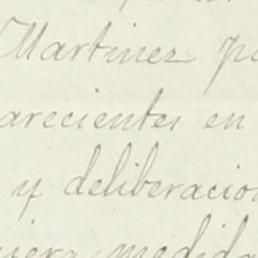 Martinez po
arecientes en
y deliberacion
uiera medida